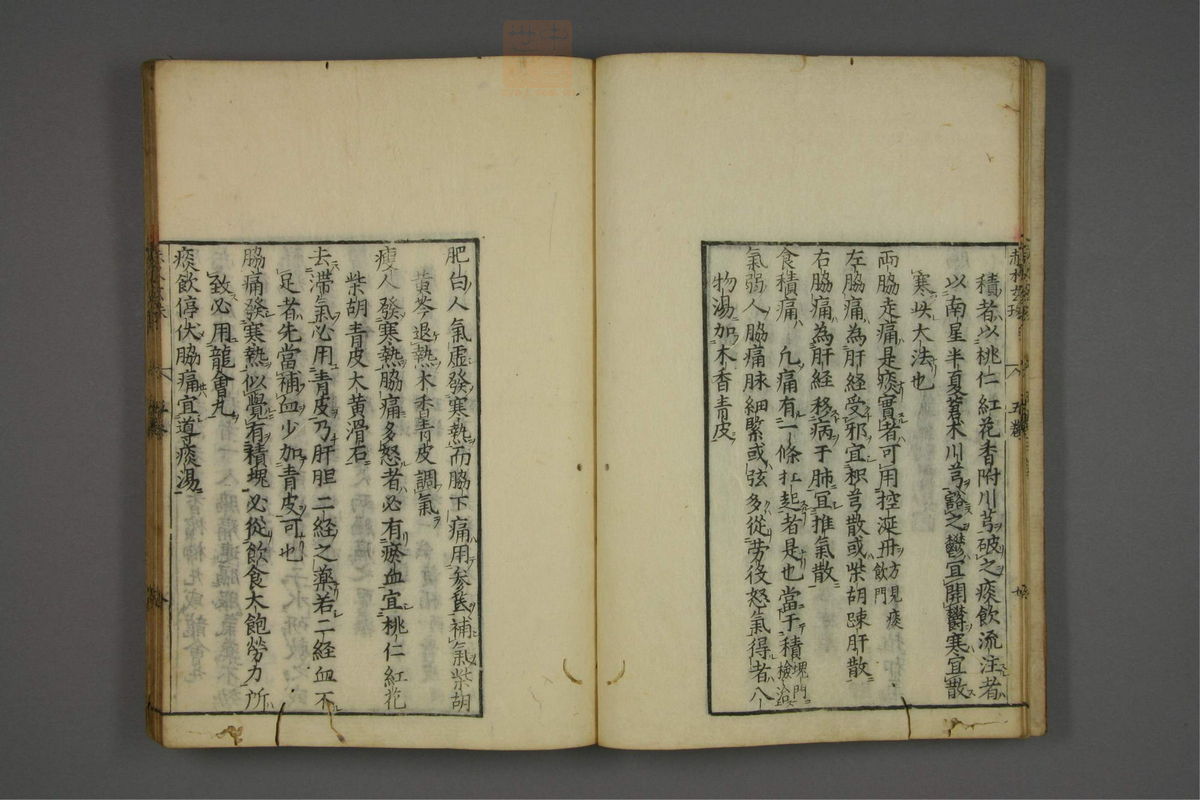 積者以桃仁紅花香附川芎破之痰飲流注者
以南星半夏蒼术川芎豁之鬱宜開鬱寒宜散
寒以大法也
兩脇走痛是痰實者可用控涎丹方見痰飲門
左脇痛為肝経受邪宜枳芎散或柴胡踈肝散
右脇痛為肝経移病于肺宜推氣散
食積痛 凢痛有一條扛起者是也當于積塊門檢治
氣弱人脇痛脉細緊或弦多從劳役怒氣得者八
物湯加木香青皮
肥白人氣虛發寒熱而脇下痛用參芪補氣柴胡
黄芩退熱木香青皮調氣
瘦人發寒熱脇痛多怒者必有瘀血宜桃仁紅花
柴胡青皮大黄滑石
去滯氣必用青皮乃肝胆二経之藥若二経血不
足者先當補血少加青皮可也
脇痛發寒熱似覺有積塊必從飲食太飽勞力所
致必用龍會丸
痰飲停伏脇痛宜導痰湯